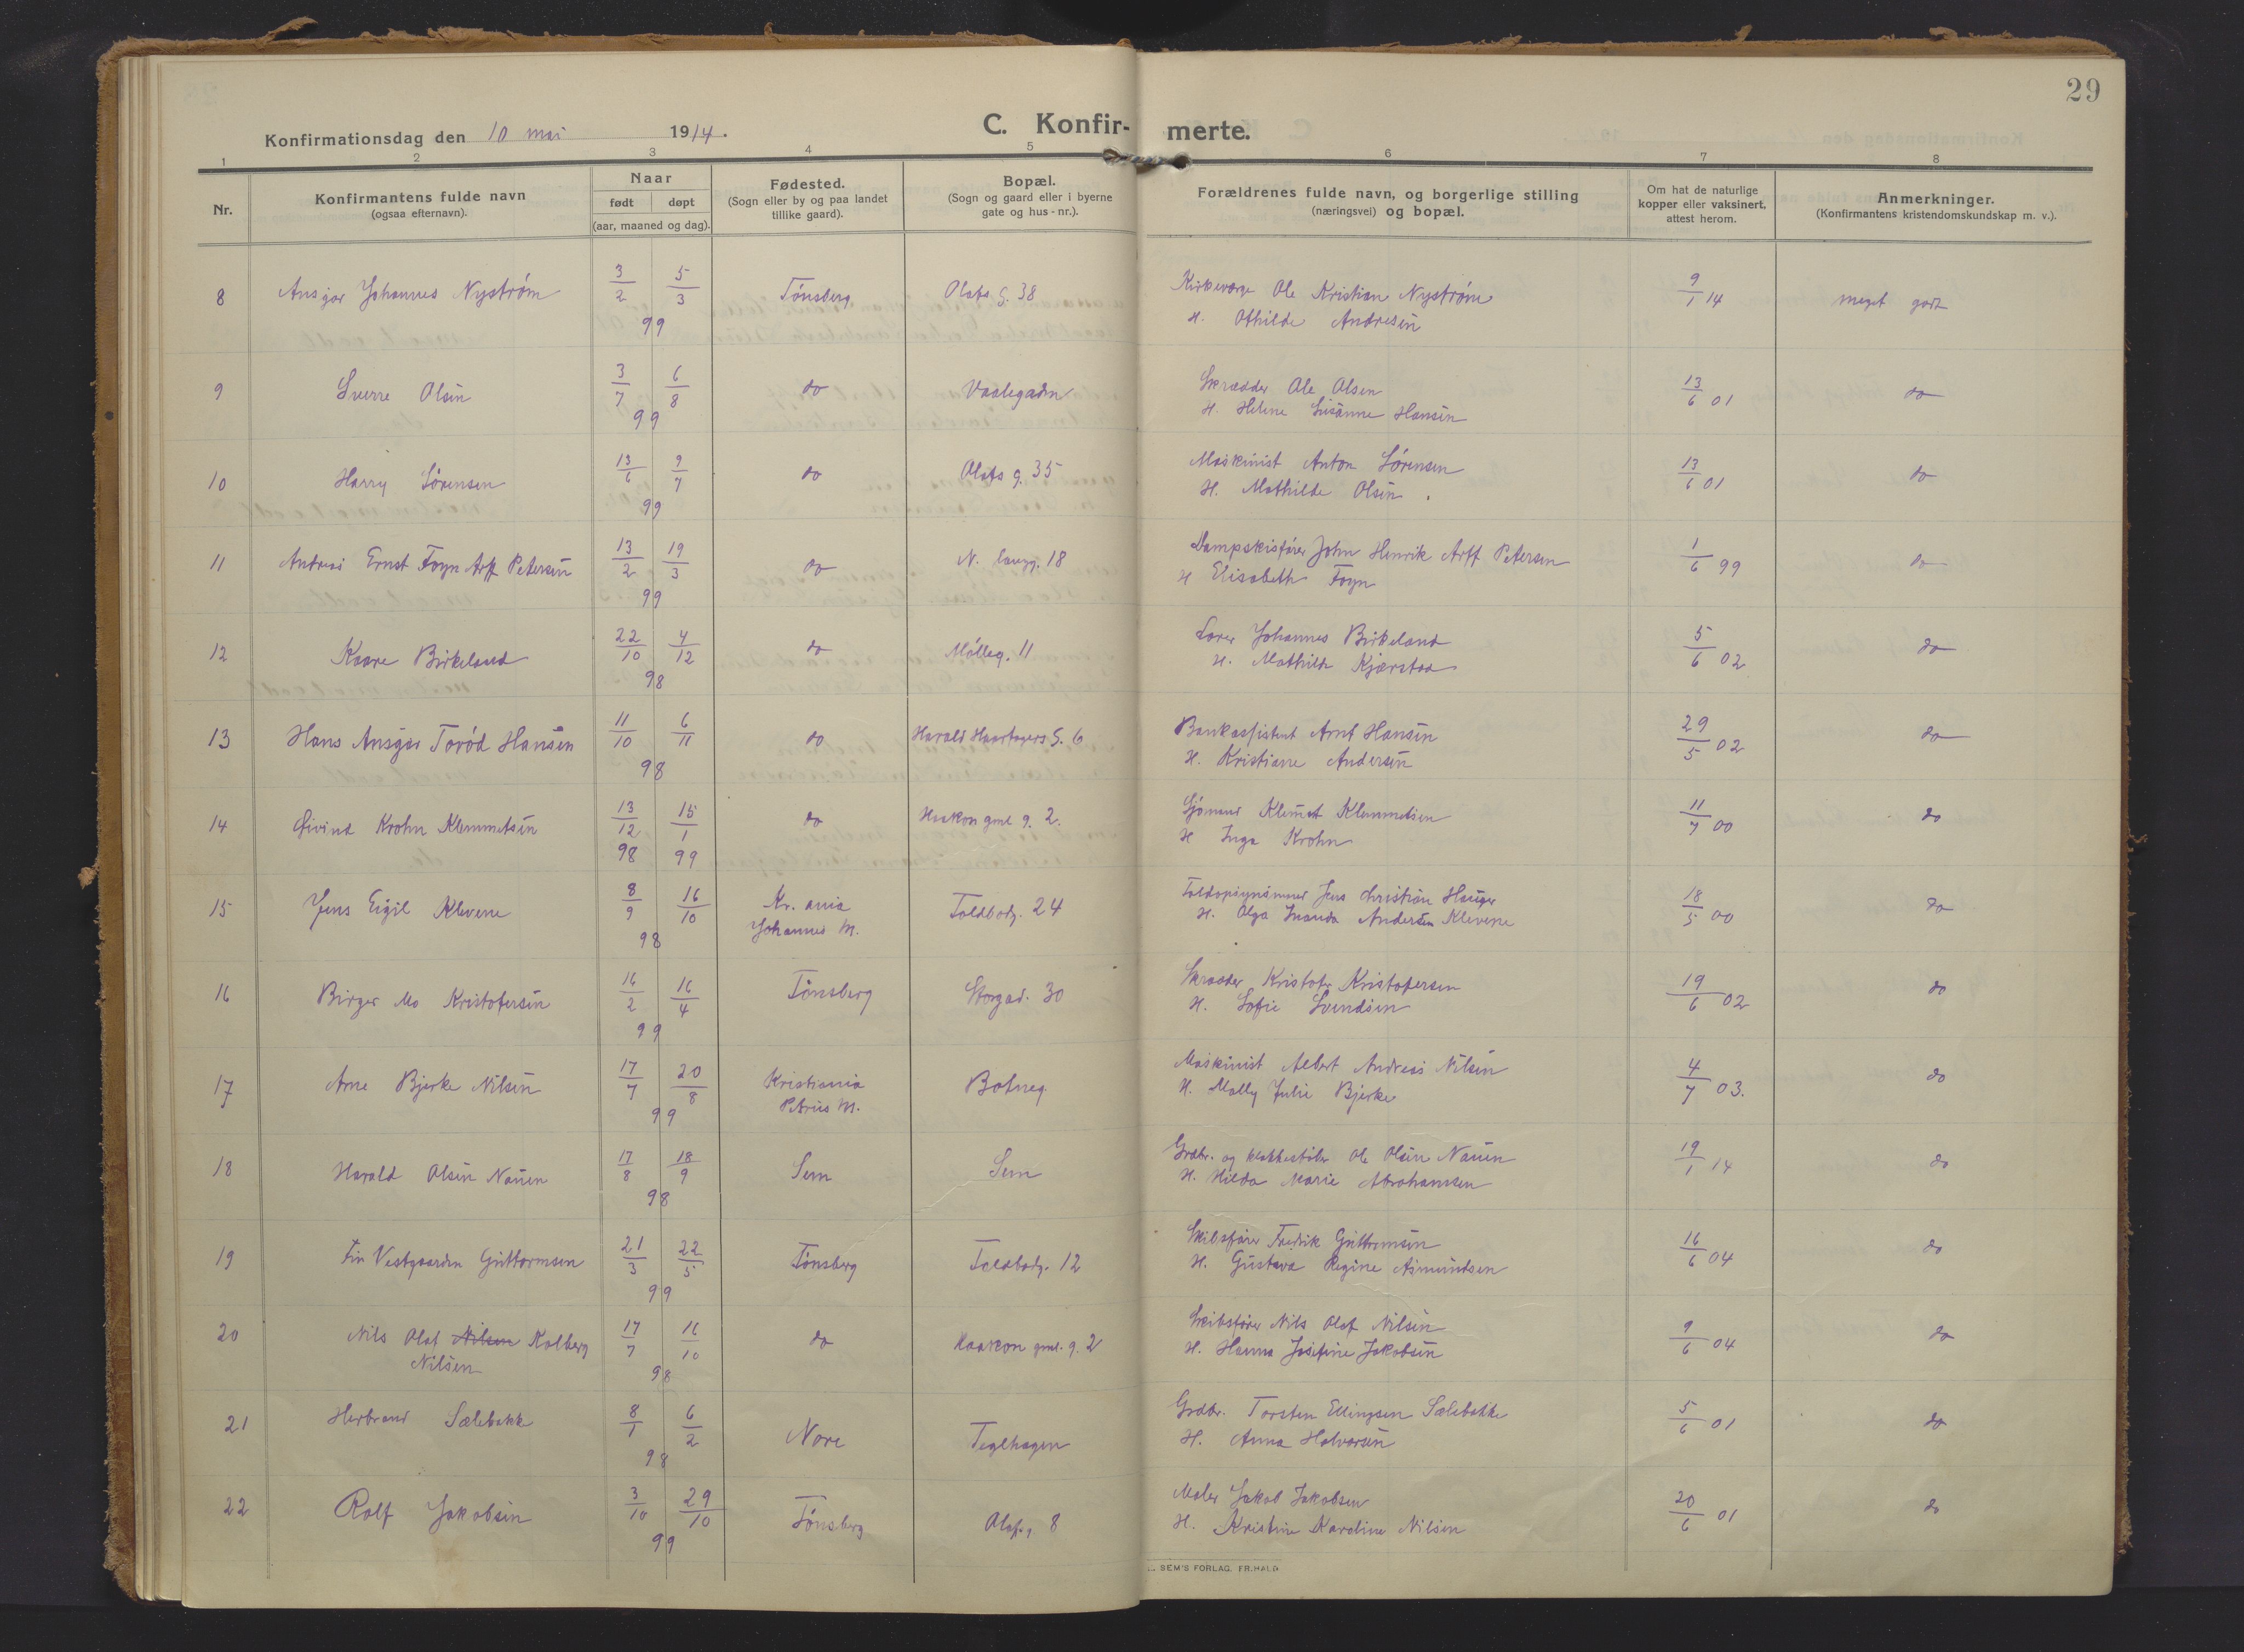 29
Konfirmationsdag den 10 mai 1914.
C. Konfir- merte.
1 2 3 4 5 6 7 8
Nr.
Konfirmantens fulde navn
(ogsaa efternavn).
Naar
født døpt
(aar, maaned og dag).
Fødested.
(Sogn eller by og paa landet
tillike gaard).
Bopæl.
(Sogn og gaard eller i byerne
gate og hus-nr.).
Forældrenes fulde navn, og borgerlige stilling
(næringsvei) og bopæl.
Om hat de naturlige
kopper eller vaksinert,
attest herom.
Anmerkninger.
(Konfirmantens kristendomskundskap m. v.).
8 Ansgar Johannes Nystrøm 3/2 5/3 99 Tønsberg Olafs g. 38 Kirkeværge Ole Kristian Nystrøm 9/1 14 meget godt
H. Othilde Andresen
9 Sverre Olsen 3/7 6/8 99 do Vaslegaden Skrædder Ole Olsen 13/6 01 do
H. Helene Susanne Hansen
10 Harry Sørensen 13/6 9/7 99 do Olafs g. 35 Maskinist Anton Sørensen 13/6 01 do
H. Mathilde Olsen
11 Andreas Ernst Foyn Arff Petersen 13/2 19/3 99 do N. Langg. 18 Dampskibsfører John Henrik Arff Petersen 1/6 99 do
H Elisabeth Foyn
12 Kaare Birkeland 22/10 4/12 98 do Mølleg. 11 Lærer Johannes Birkeland 5/6 02 do
H. Mathilde Kjærstad
13 Hans Ansgar Torød Hansen 11/10 6/11 98 do Harald Haarfagers g. 6 Bankassistent Arnt Hansen 29/5 02 do
H. Kristiane Andersen
14 Øivind Krohn Klemmetsen 13/12 98 15/1 99 do Haakon gml g. 2. Sjømand Klemet Klemmetsen 11/7 00 do
H Inga Krohn
15 Jens Eigil Klevene 8/9 16/10 98 Kr. ania Toldbodg. 24 Toldopsynsmand Jens Christian Hauger 18/5 00 do
Johannes M. H. Olga Amanda Andersen Klevene
16 Birger Mo Kristofersen 16/2 16/4 99 Tønsberg Storgad. 30 Skrædder Kristofer Kristofersen 19/6 02 do
H. Sofie Svendsen
17 Arne Bjerke Nilsen 17/7 20/8 99 Kristiania Botneg Maskinist Albert Andreas Nilsen 4/7 03. do
Petrus M. H. Molly Julie Bjerke
18 Harald Olsen Nauen 17/8 18/9 98 Sem Sem Grdbr. og klokkestøber Ole Olsen Nauen 19/1 14 do
H. Hilda Marie Abrahamsen
19 Fin Vestgaarden Guttormsen 21/3 22/5 99 Tønsberg Toldbodg. 12 Skibsfører Fredrik Guttormsen 16/6 04 do
H. Gustava Regine Asmundsen
20 Nils Olaf Nilsen Kolberg 17/7 16/10 98 do Haakon gml. g. 2 Skibsfører Nils Olaf Nilsen 9/6 04 do
Nilsen H. Hanna Josefine Jakobsen
21 Herbrand Sælebakk 8/1 6/2 98 Nore Teglhagen Grdbr. Torsten Ellingsen Sælebakke 5/6 01 do
H. Anna Halvorsen
22 Rolf Jakobsen 3/10 29/10 99 Tønsberg Olafsg 8 Maler Jakob Jakobsen 20/6 01 do
H. Kristine Karoline Nilsen
SEM'S FORLAG, FR.HALD